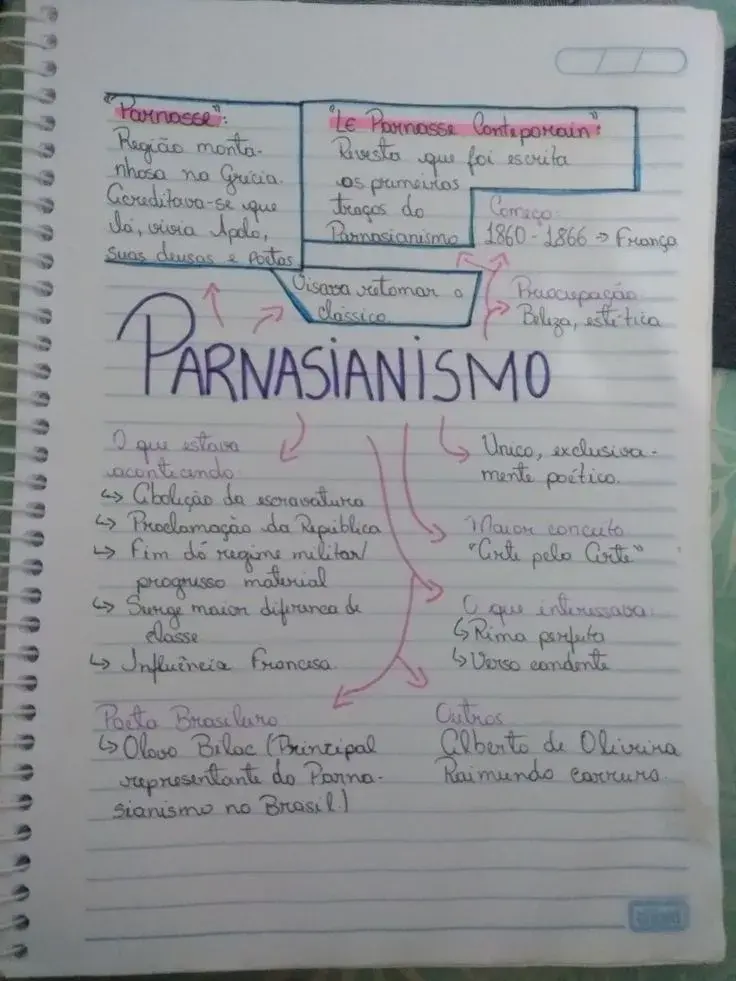 "Parnasse":
Região monta-
nhosa na Grécia.
Acreditava-se que
lá, vivia Apolo,
suas deusas e poetas
"Le Parnasse Conteporain":
Revista que foi escrita
os primeiros
traços do
Parnasianismo
Começo:
1860 - 1866 → França
Visava retomar o
clássico
Preocupação:
Beleza, estética
PARNASIANISMO
O que estava
acontecendo:
↳ Abolição da escravatura
↳ Proclamação da República
↳ Fim do regime militar/
progresso material
↳ Surge maior diferença de
classe
↳ Influência Francesa.
Unico, exclusiva-
mente poético.
Maior conceito
"Arte pela Arte"
O que interessava:
↳ Rima perfeita
↳ Verso condente
Poeta Brasileiro
↳ Olavo Bilac (Principal
representante do Parna-
sianismo no Brasil)
Outros
Alberto de Oliveira
Raimundo carreiro.